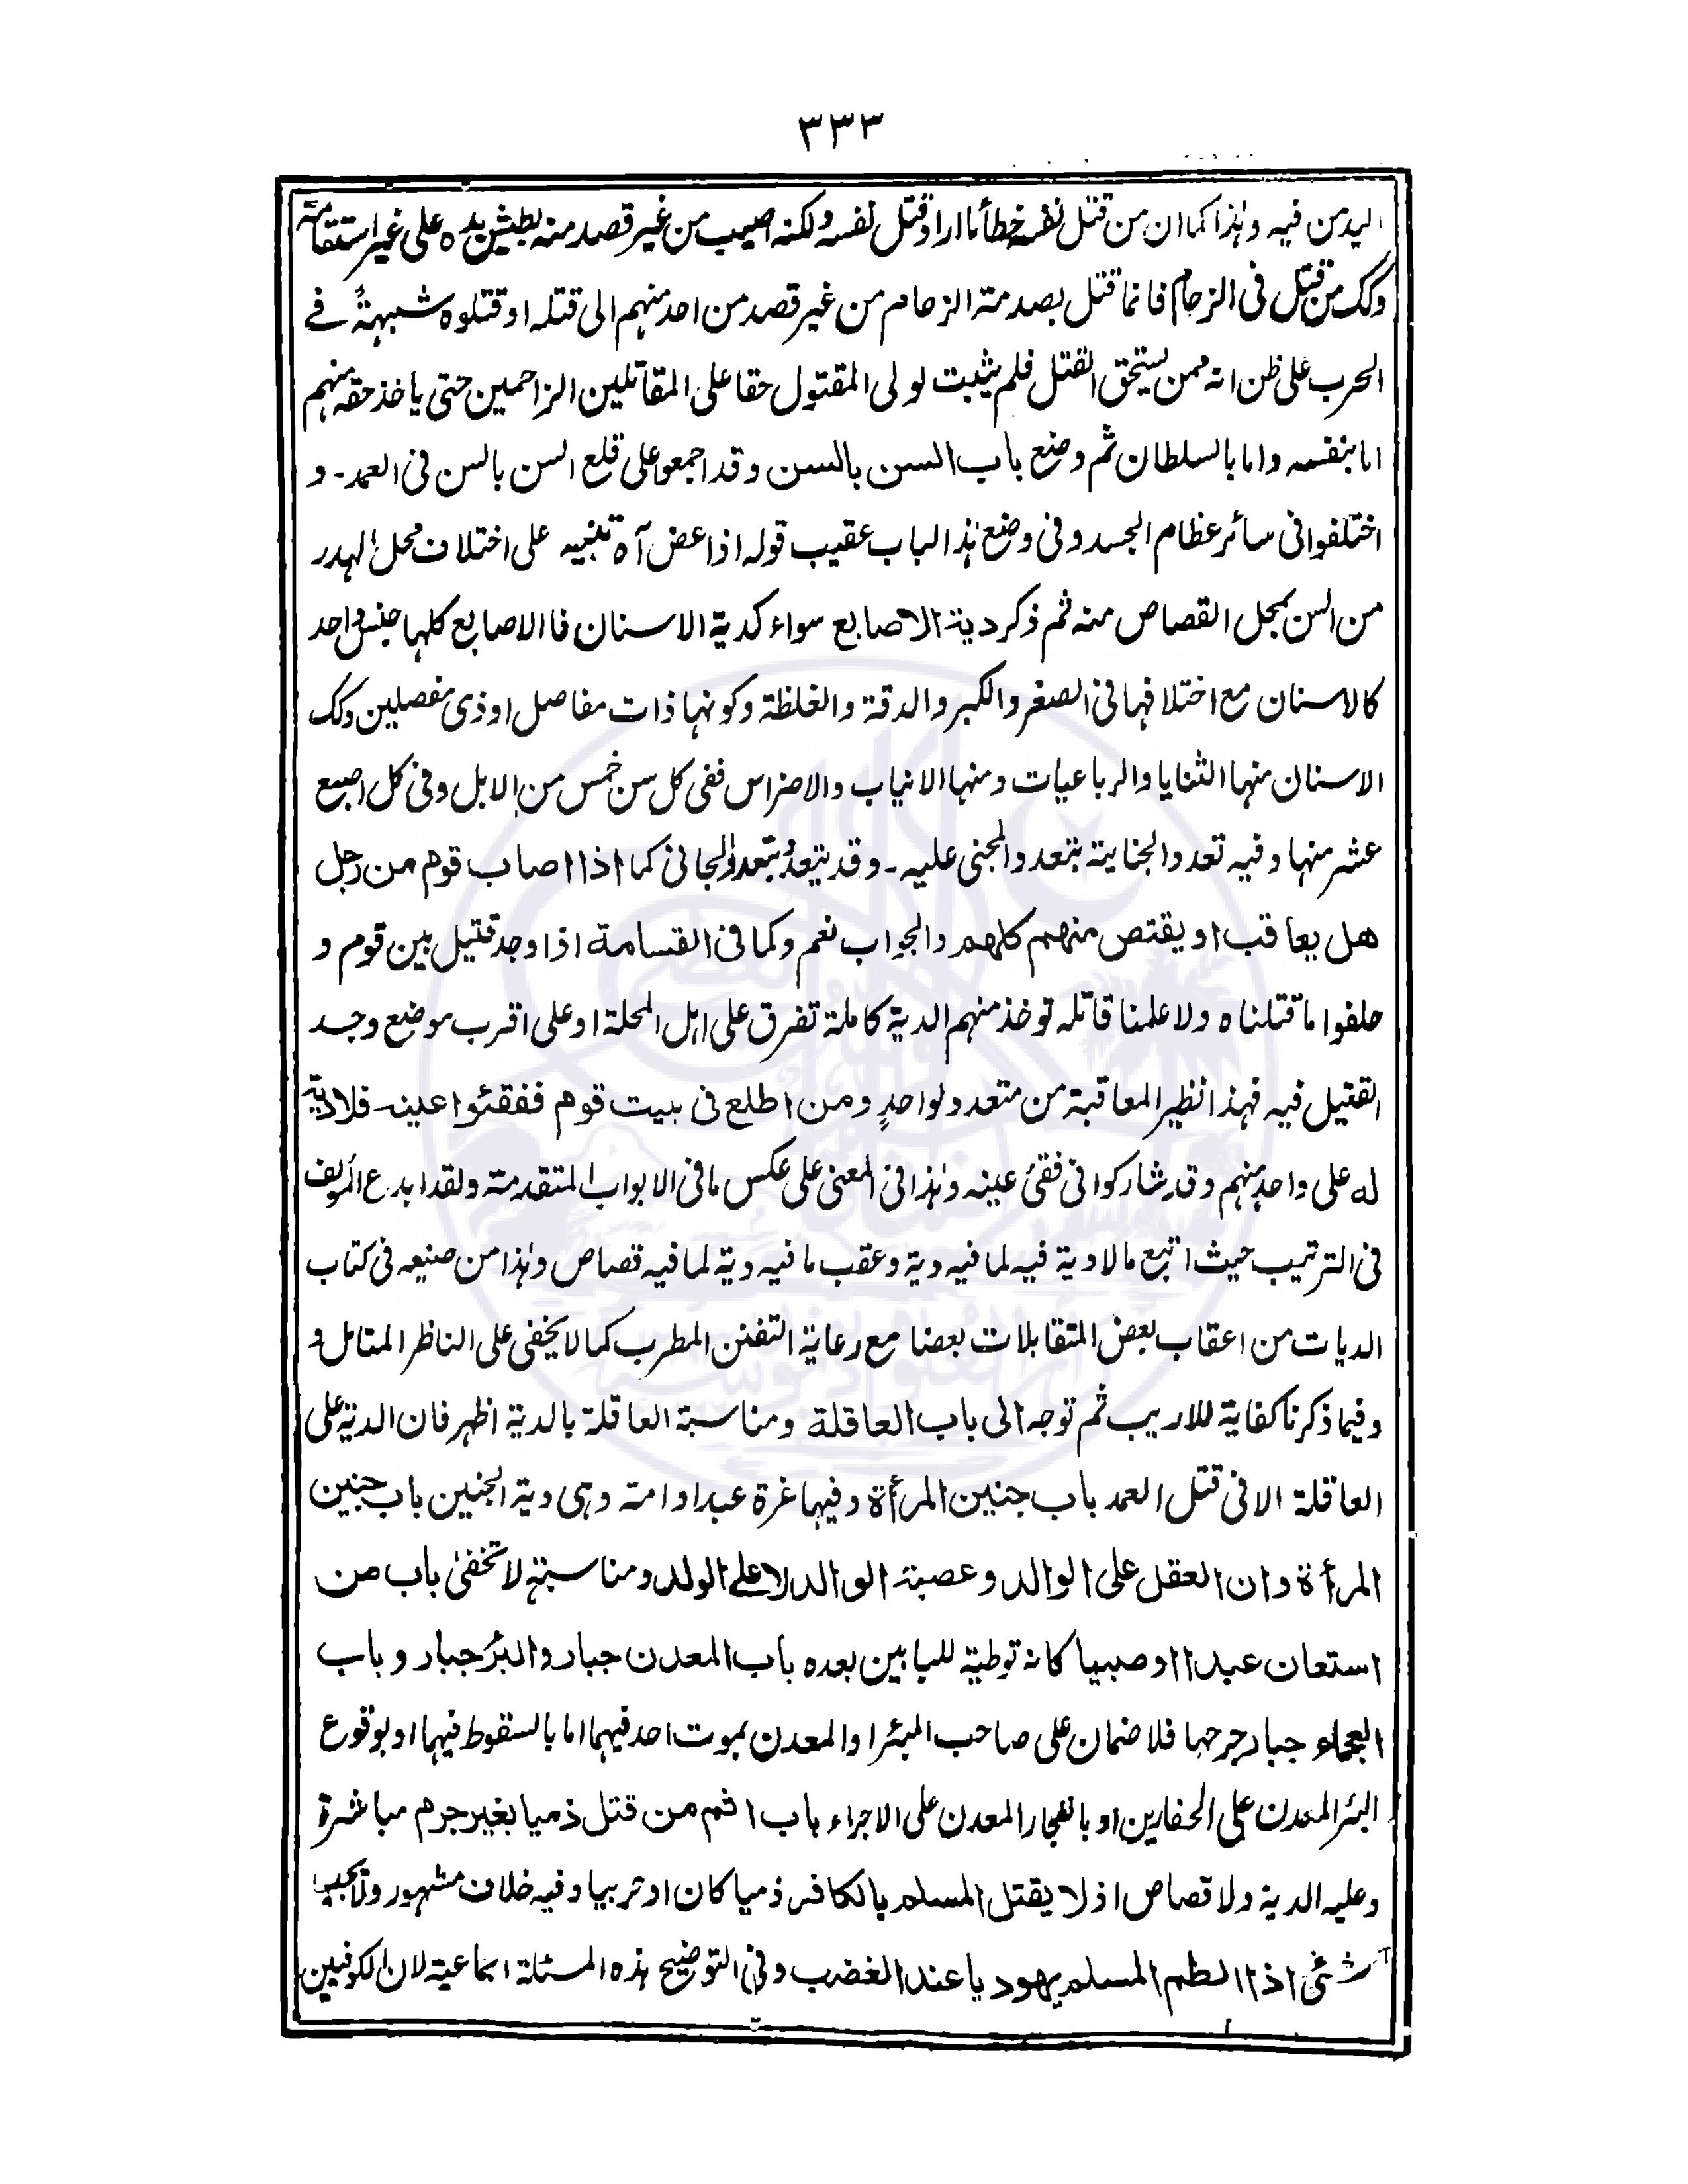 ٣٣٣
اليد من فيه وهٰذا كما ان من قتل نفسه خطأ ما اراد قتل نفسه ولكنه اصيب من غير قصد منه بطيش يده على غير استقامة
وكك من قتل فى الزحام فانما قتل بصدمة الزحام من غير قصد من احد منهم الى قتله او قتلوه شبهةً فے
الحرب على ظن انه ممن يستحق القتل فلم يثبت لولى المقتول حقا على المقاتلين الزاحمين حتى ياخذ حقه منهم
اما بنفسه واما بالسلطان ثم وضع باب السن بالسن وقد اجمعوا على قلع السن بالسن فى العمد ۔ و
اختلفوا فى سائر عظام الجسد وفى وضع هٰذ الباب عقيب قوله اذا عض آه تنبيه على اختلاف محل الهدر
من السن بمحل القصاص منه ثم ذكر دية الاصابع سواء كدية الاسنان فالاصابع كلها جنس واحد
كالاسنان مع اختلافها فى الصغر والكبر والدقة والغلظة وكونها ذات مفاصل او ذى مفصلين وكك
الاسنان منها الثنايا والرباعيات ومنها الانياب والاضراس ففى كل سن خمس من الابل وفى كل اصبع
عشر منها وفيه تعدد الجناية بتعدد المجنى عليه ۔ وقد يتعدد بتعدد الجانى كما اذا اصاب قوم من رجل
هل يعاقب او يقتص منهم كلهم والجواب نعم وكما فى القسامة اذا وجد قتيل بين قوم و
حلفوا ما قتلناه ولا علمنا قاتله توخذ منهم الدية كاملة تفرق على اهل المحلة او على اقرب موضع وجد
القتيل فيه فهذا نظير المعاقبة من متعدد لواحدٍ ومن اطلع فى بيت قوم ففقئوا عينه فلا دية
له على واحد منهم وقد شاركوا فى فقئ عينه وهٰذا فى المعنى على عكس ما فى الابواب المتقدمة ولقد ابدع المؤلف
فى الترتيب حيث اتبع ما لا دية فيه لما فيه دية وعقب ما فيه دية لما فيه قصاص وهٰذا من صنيعه فى كتاب
الديات من اعقاب بعض المتقابلات بعضا مع رعاية التفنن المطرب كما لا يخفى على الناظر المتامل و
وفيما ذكرنا كفاية للاريب ثم توجه الى باب العاقلة ومناسبة العاقلة بالدية اظهر فان الدية على
العاقلة الا فى قتل العمد باب جنين المرأة وفيها غرة عبد او امة وهى دية الجنين باب جنين
المرأة وان العقل على الوالد وعصبة الوالد لا علے الولد ومناسبته لا تخفىٰ باب من
استعان عبدا او صبيا كانه توطية للبابين بعده باب المعدن جبار والبئر جبار وباب
العجماء جبار جرحها فلا ضمان على صاحب البئر او المعدن بموت احد فيهما اما بالسقوط فيهما او بوقوع
البئر المعدن على الحفارين او بانفجار المعدن على الاجراء باب اثم من قتل ذميا بغير جرم مباشرة
وعليه الدية ولا قصاص اذ لا يقتل المسلم بالكافر ذميا كان او حربيا وفيه خلاف مشهور ولا يجب
شئى اذا لطم المسلم يهوديا عند الغضب وفى التوضيح هذه المسئلة اجماعية لان الكوفيين